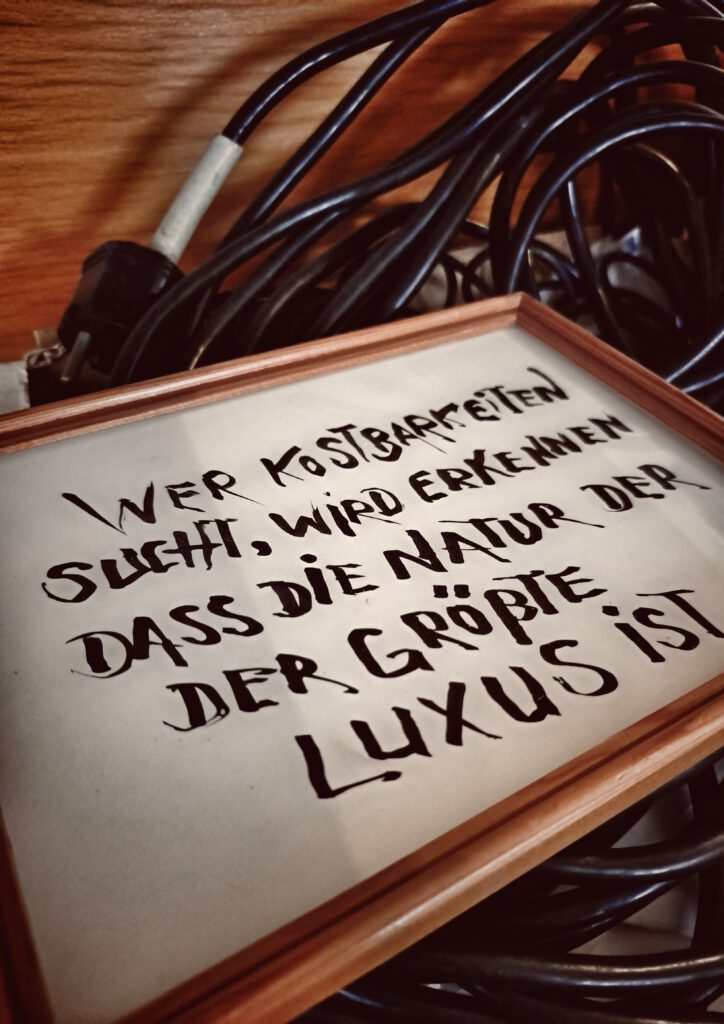 WER KOSTBARKEITEN
SUCHT, WIRD ERKENNEN
DASS DIE NATUR DER
DER GRÖßTE
LUXUS IST